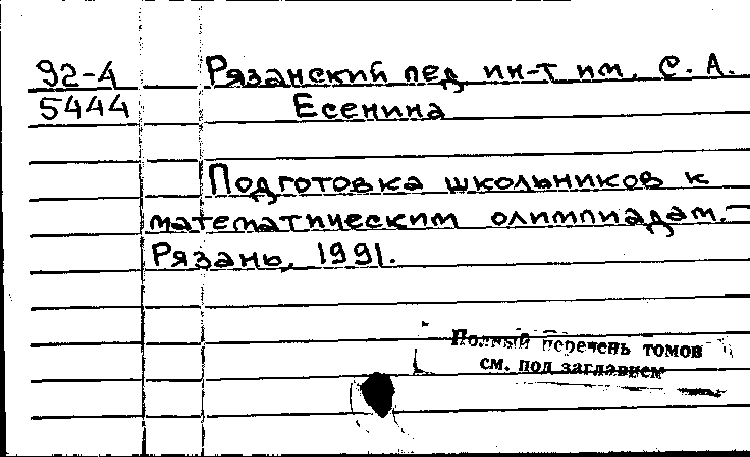 92-4 Рязанский пед. ин-т им. С. А.
5444 Есенина
Подготовка школьников к
математическим олимпиадам.-
Рязань, 1991.
Полный перечень томов
см. под заглавием